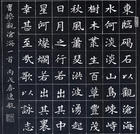 東臨碣石以觀滄
海水何澹澹山島
竦峙樹木叢生百
草豐茂秋風蕭瑟
洪波湧起日月之
行若出其中星漢
燦爛若出其裏幸
甚至哉歌以詠志
曹操觀滄海一首